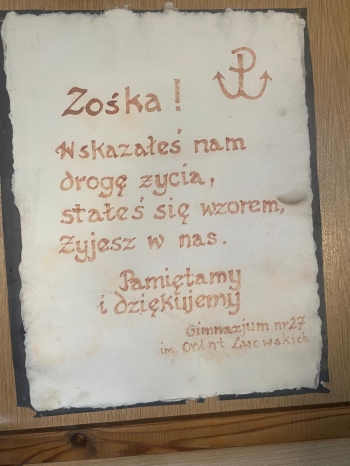 Zośka!
Wskazałeś nam
drogę życia,
stałeś się wzorem,
Żyjesz w nas.
Pamiętamy
i dziękujemy
Gimnazjum nr 27
im. Orląt Lwowskich